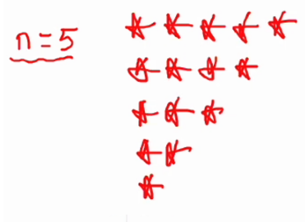 n = 5
* * * * *
* * * *
* * *
* *
*